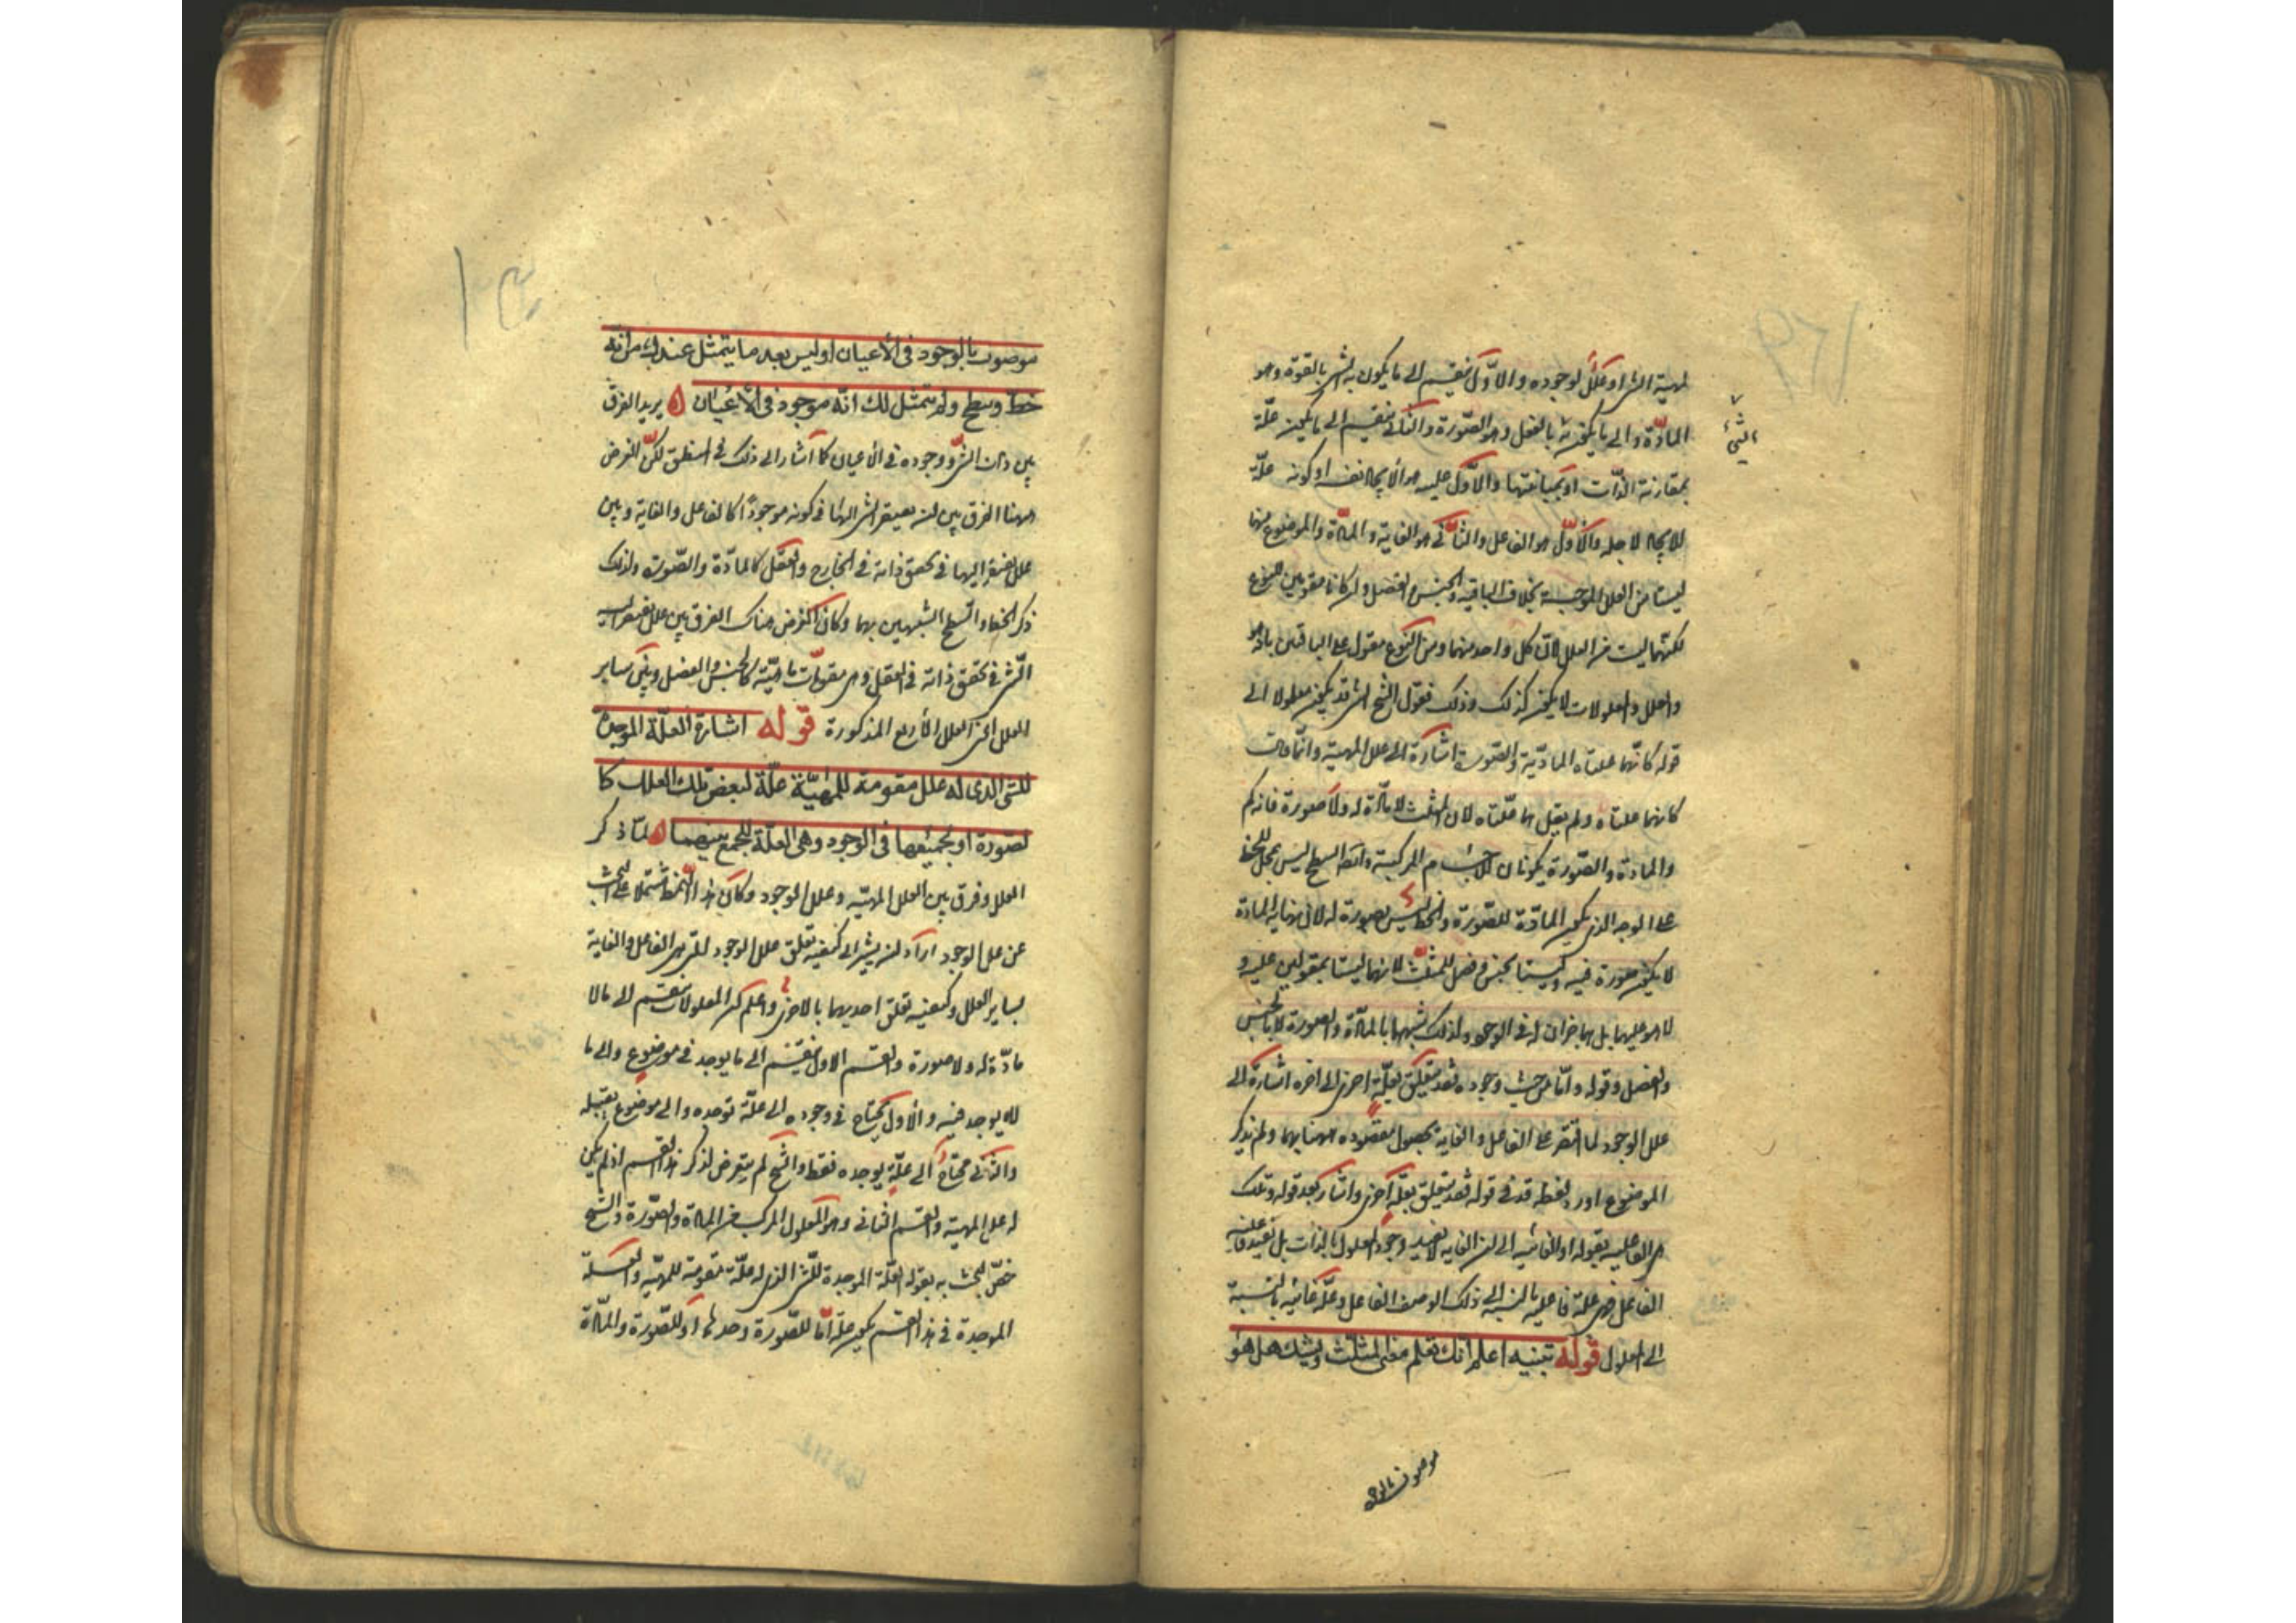 لمهية الشئ او عللا لوجوده والاول ينقسم الى ما يكون به الشئ بالقوة وهو
المادة والى ما يكون به بالفعل وهو الصورة والثانى ينقسم الى ما يكون علة
الشئ
بمقارنة الذات او بمباينتها والاول هو الايجاد نفسه او كونه علة
للايجاد لاجله والاول هو الفاعل والثانى هو الغاية والمادة والموضوع منها
ليستا من العلل الموجبة بخلاف الباقية والجنس والفصل وان كانا مقومين للنوع
لكنهما ليست من العلل لان كل واحد منهما ومن النوع مقول على الباقين بانه هو
والعلل والمعلولات لا يكون كذلك وذلك فقول الشيخ الشئ قد يكون معلولا الى
قوله كانهما علتاه المادية والصورية اشارة الى علل المهية وانما قال
كانهما علتاه ولم يقل هما علتاه لان المثلث لا مادة له ولا صورة فانه كم
والمادة والصورة يكونان للاجسام المركبة وايضا السطح ليس بمحل للخط
على الوجه الذى يكون المادة للصورة والخط ليس بصورة له لان نهاية المادة
لا يكون صورة فيه وليستا بجنس وفصل للمثلث لانهما ليستا بمقولين عليه و
لا هو عليهما بل هما جزآن له فى الوجود ولذلك شبههما بالمادة والصورة لا بالجنس
والفصل وقوله واما من حيث وجوده فقد يتعلق بعلة اخرى الى اخره اشارة الى
علل الوجود لما اقتصر على الفاعل والغاية بحصول مقصوده ههنا بهما ولم يذكر
الموضوع اورد لفظة قد فى قوله فقد يتعلق بعلة اخرى واشار بعد قوله وتلك
هى الفاعلية بقوله او الغائية الى ان الغاية لا تفيد وجود المعلول بالذات بل تفيد فاعلية
الفاعل فهى علة فاعلية بالنسبة الى ذلك الوصف الفاعل وعلة غائية بالنسبة
الى المعلول قوله تنبيه اعلم انك تعلم معنى المثلث وتشك هل هو
موصوف بالوجود
موصوف بالوجود فى الاعيان او ليس بعد ما يتمثل عندك من انه
خط وسطح ولم يتمثل لك انه موجود فى الاعيان ه يريد الفرق
بين ذات الشئ ووجوده فى الاعيان كما اشار الى ذلك فى المنطق لكن الغرض
ههنا الفرق بين علل يفتقر الشئ اليها فى كونه موجودا كالفاعل والغاية وبين
علل يفتقر اليها فى تحقق ذاته فى الخارج والعقل كالمادة والصورة ولذلك
ذكر الخط والسطح الشبيهين بهما وكان الغرض هناك الفرق بين علل يفتقر اليها
الشئ فى تحقق ذاته فى العقل وهى مقومات ماهيته كالجنس والفصل وبين ساير
العلل اعنى العلل الاربع المذكورة قوله اشارة العلة الموجدة
للشى الذى له علل مقومة للمهية علة لبعض تلك العلل كا
لصورة او لجميعها فى الوجود وهى العلة للجمع بينهما ه لما ذكر
العلل وفرق بين العلل المهية وعلل الوجود وكان هذا النمط مشتملا على البحث
عن علل الوجود اراد ان يشير الى كيفية تعلق علل الوجود التى هى الفاعل والغاية
بساير العلل وكيفية تعلق احديهما بالاخرى واعلم ان المعلولات ينقسم الى ما لا
مادة له ولا صورة والقسم الاول ينقسم الى ما يوجد فى موضوع والى ما
لا يوجد فيه والاول يحتاج فى وجوده الى علة توجده والى موضوع يقبله
والثانى محتاج الى علة يوجده فقط والشيخ لم يتعرض لذكر هذا القسم اذ لم يكن
له علل المهية والقسم الثانى وهو المعلول المركب من المادة والصورة والشيخ
خص البحث به بقوله العلة الموجدة للشئ الذى له علة مقومة للمهية والعلة
الموجدة فى هذا القسم يكون علة اما للصورة وحدها او للصورة والمادة